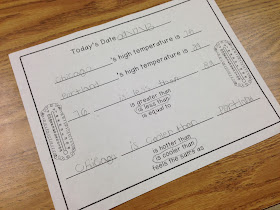 Today's Date
Chicago 's high temperature is
Portland 's high temperature is
is less than
is greater than
is less than
is equal to
Chicago is cooler than Portland
is hotter than
is cooler than
feels the same as